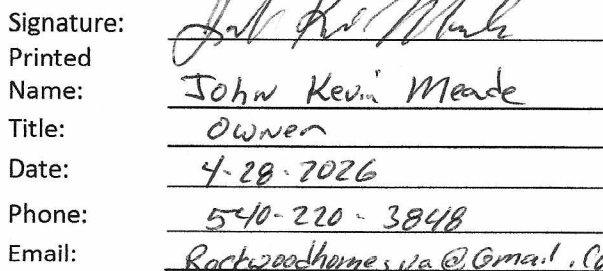 Signature:
Printed
Name: John Kevin Meade
Title: Owner
Date: 4-28-2026
Phone: 540-220-3848
Email: Rockwoodhomesva@Gmail.Co